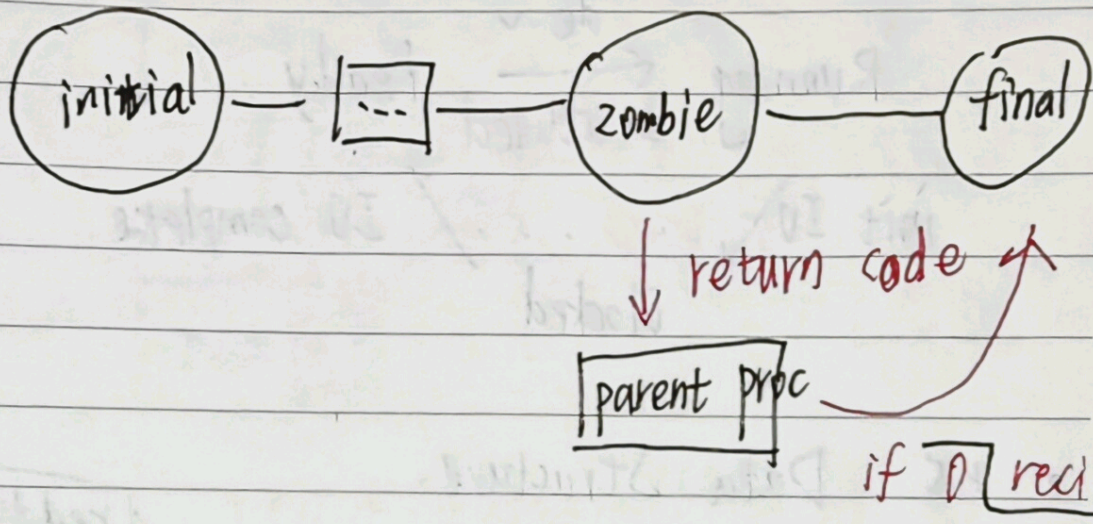 initial ... zombie final
return code
parent proc
if 0 reci